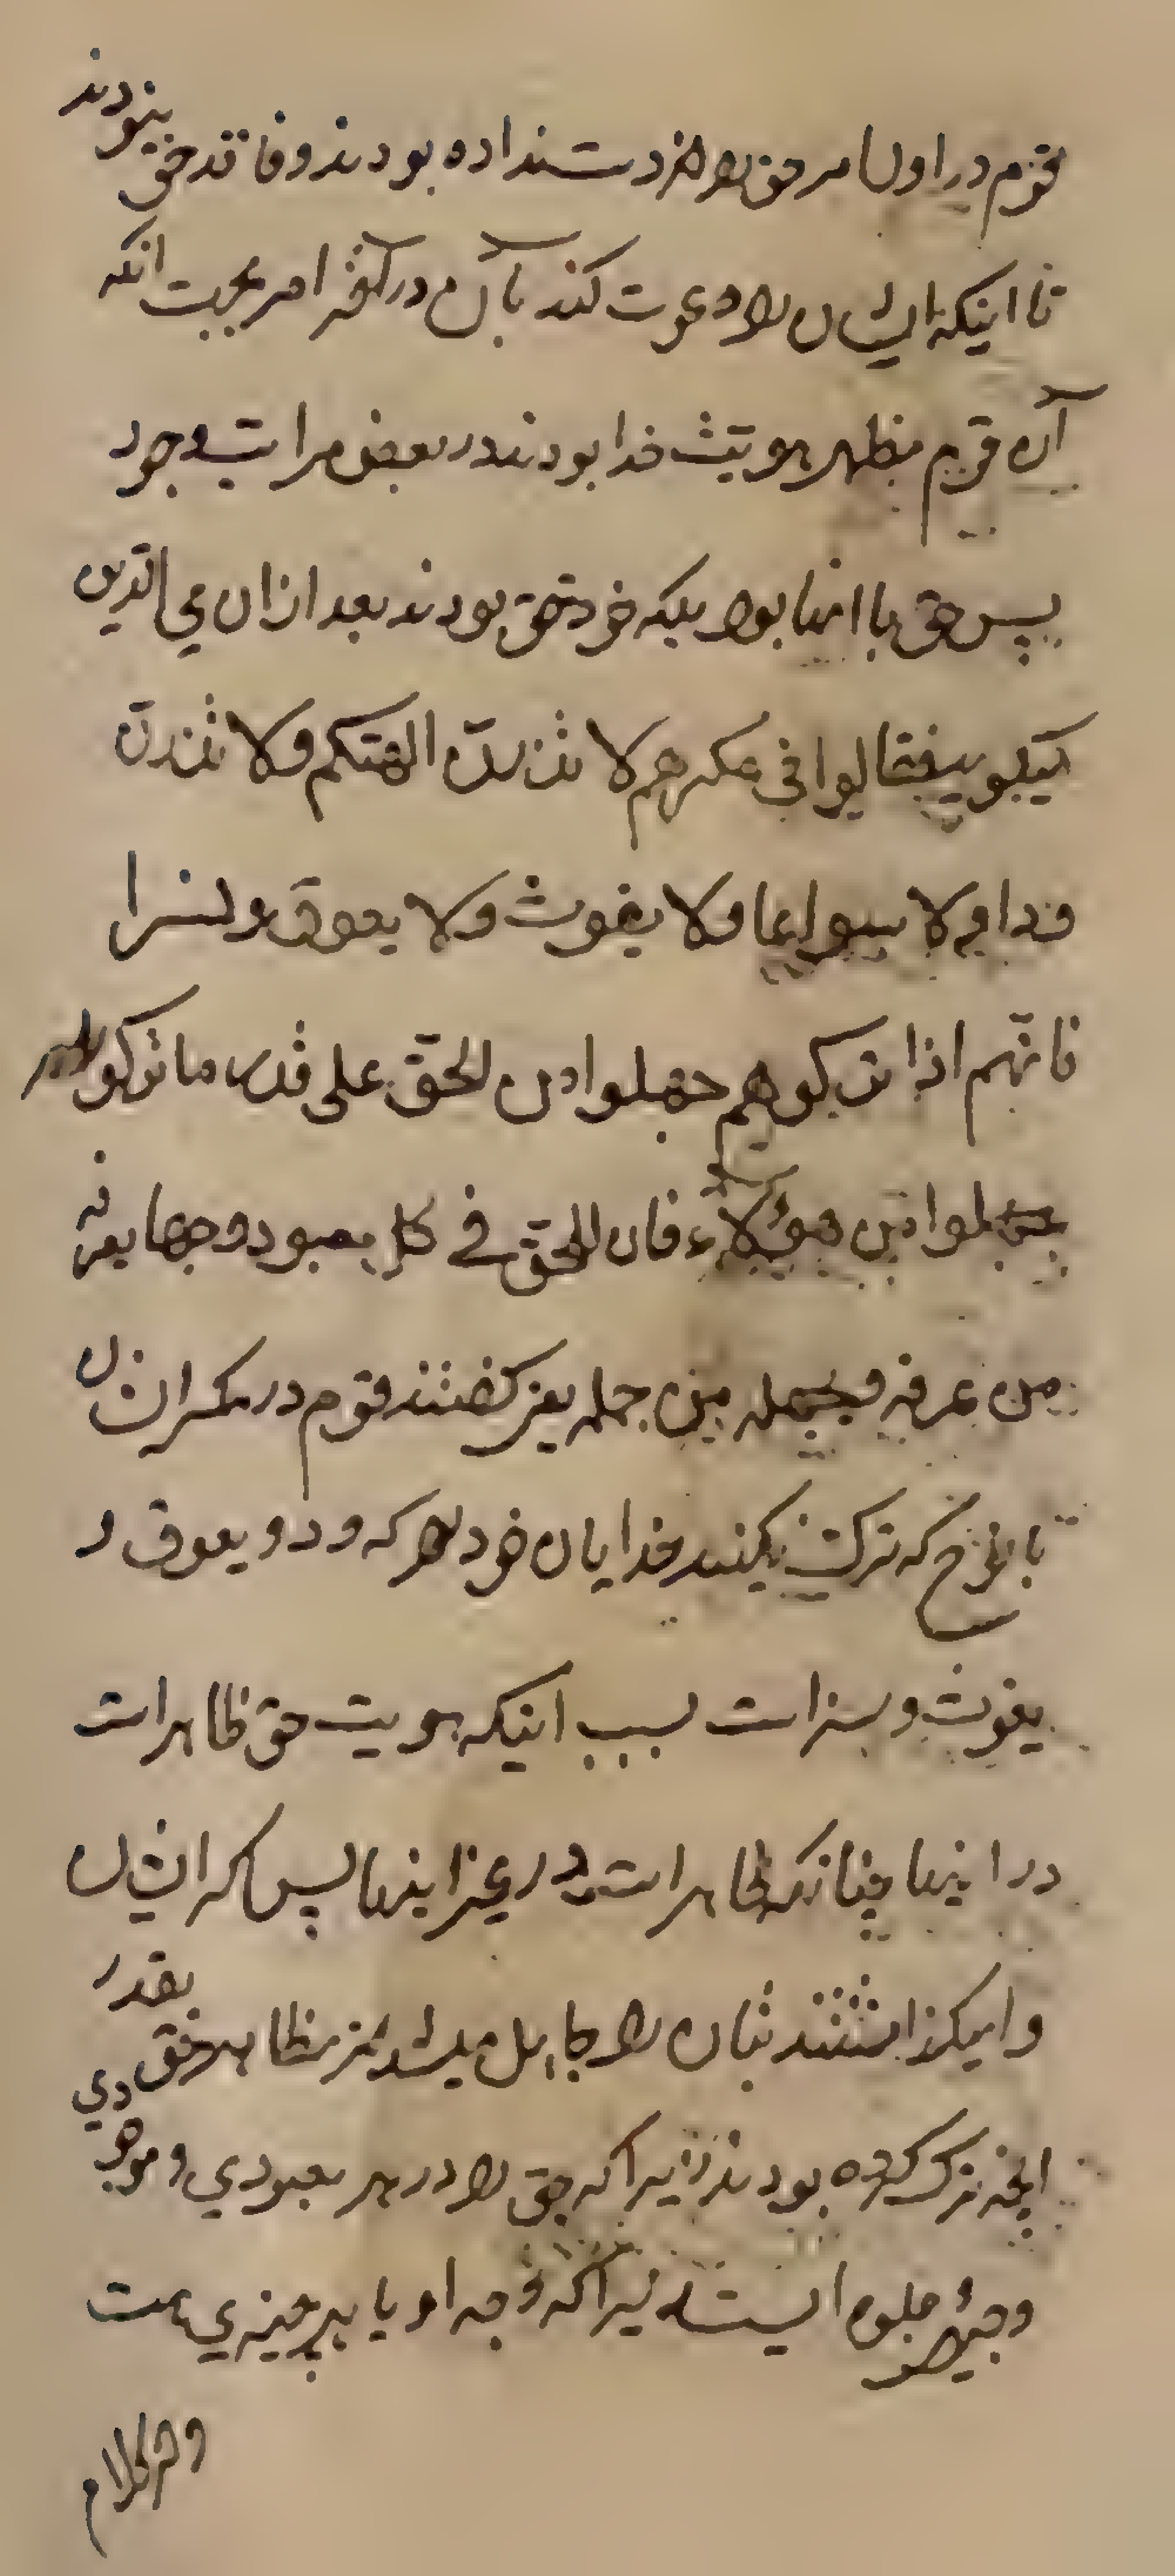 قوم در اول امر حق را از دست نداده بودند و فاقد حق نبودند
تا اینکه ایشان را دعوت کند بآن در آخر امر بجهت انکه
آن قوم مظهر هویت خدا بودند در بعض مراتب وجود
پس حق با اینها بود بلکه خود حق بودند بعد ازان محی الدین
میکوید فقالوا فی مکرهم لا تذرن الهتکم ولا تذرن
ودا ولا سواعا ولا یغوث ولا یعوق ونسرا
فانهم اذا ترکوهم جهلوا من الحق علی قدر ما ترکوا
جهلوا من هؤلاء فان للحق فی کل معبود وجها یعرفه
من عرفه و یجهله من جهله یعنی کفتند قوم در مکر ایشان
با نوح که ترک نکنید خدایان خود را که ود و یعوق و
یغوث و نسر است بسبب اینکه هویت حق ظاهر است
در اینها چنانکه ظاهر است در غیر اینها پس اکر ایشان
وامیکذاشتند بتان را جاهل میشدند از مظاهر حق بقدر
انچه ترک کرده بودند زیرا که حق را در هر معبودی و موجودی
وجهی و جلوه ایست زیرا که وجه او با هر چیزی هست